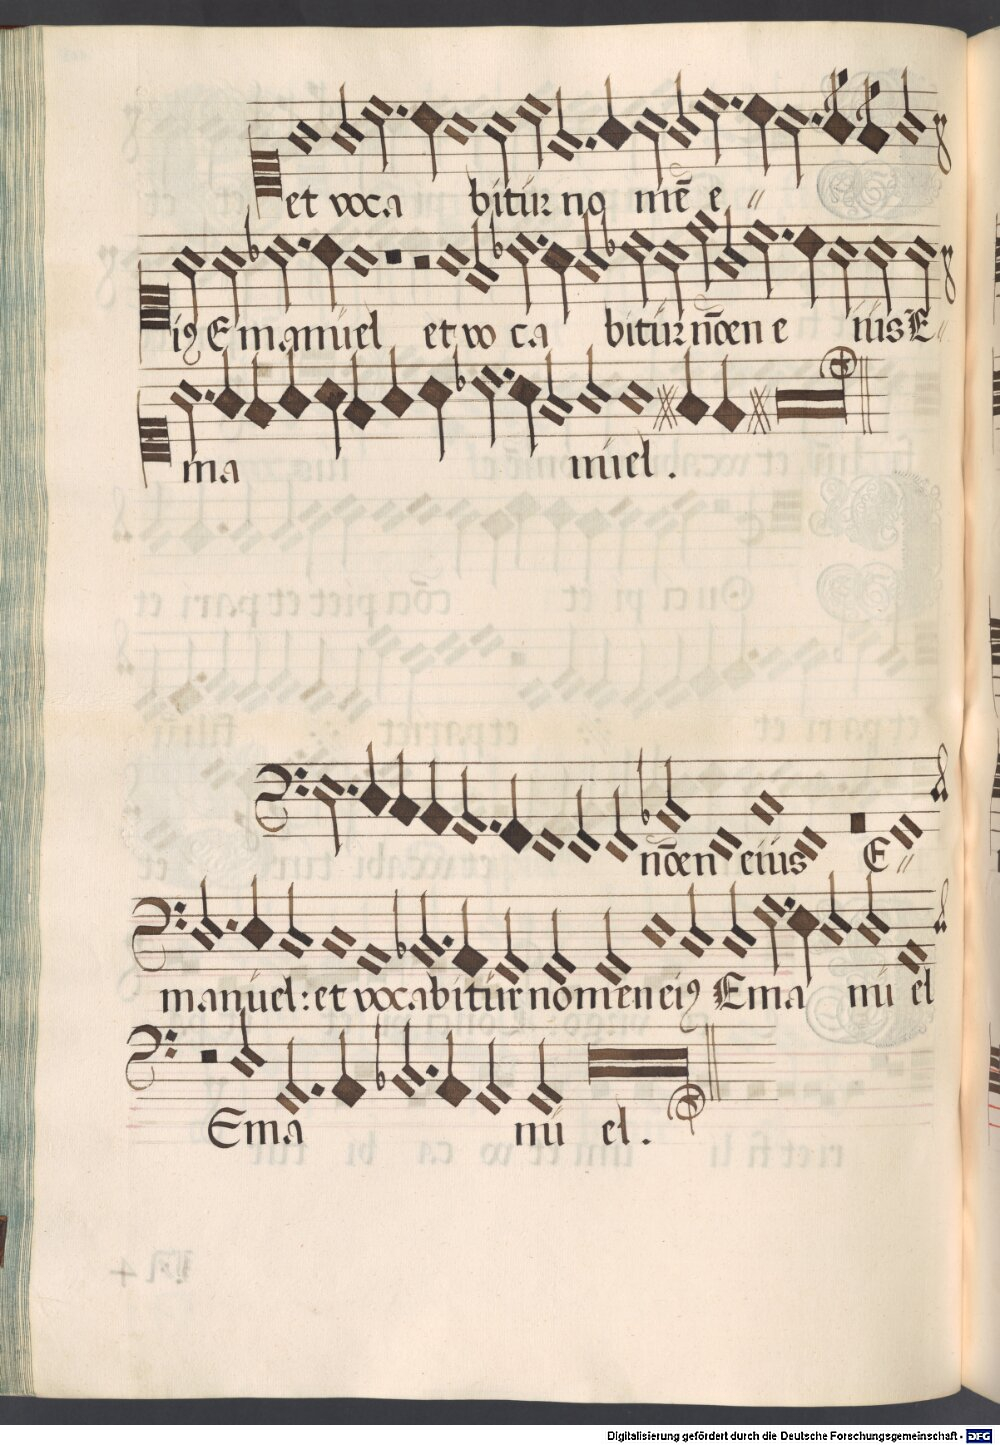 et voca bitur no mē e〃
iꝰ Emanuel et vo ca bitur nōen e ius E〃
ma nuel.
nōen eius E〃
manuel: et vocabitur nomen eiꝰ Ema nu el
Ema nu el.
Digitalisierung gefördert durch die Deutsche Forschungsgemeinschaft - DFG